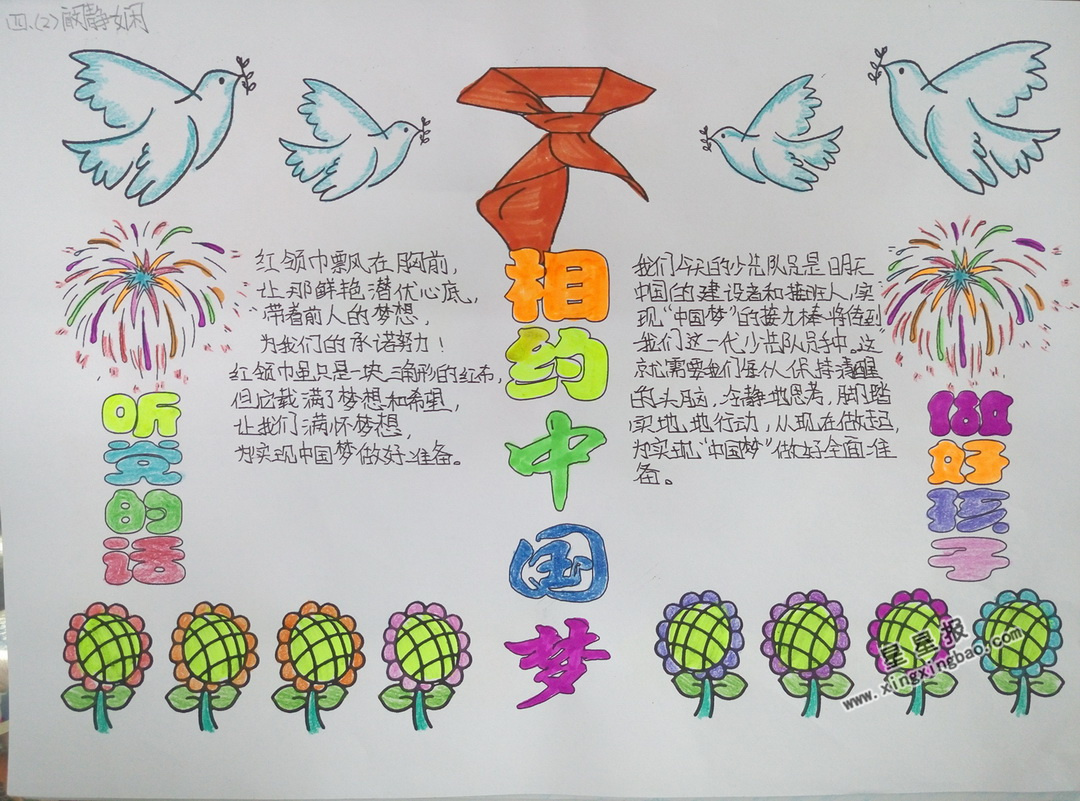 四、(2) 静娴
相约中国梦
听党的话
红领巾飘风在胸前，
让那鲜艳潜伏心底，
带着前人的梦想，
为我们的承诺努力！
红领巾虽只是一块三角形的红布，
但它载满了梦想和希望，
让我们满怀梦想，
为实现中国梦做好准备。
我们今天的少先队员是明天
中国的建设者和接班人，实
现“中国梦”的接力棒将传到
我们这一代少先队员手中。这
就需要我们保持清醒
的头脑，冷静地思考，脚踏
实地地行动，从现在做起，
为实现“中国梦”做好全面准
备。
做好孩子
星星报
www.xingxingbao.com